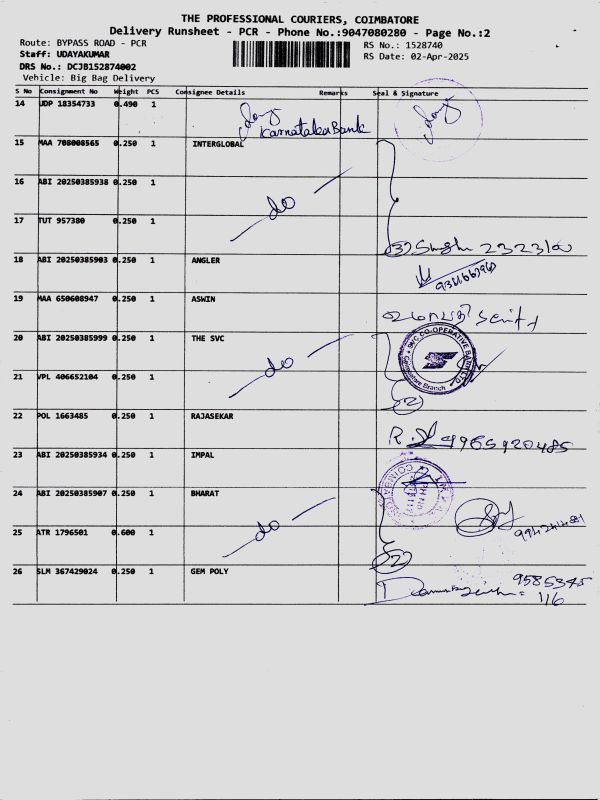 THE PROFESSIONAL COURIERS, COIMBATORE
Delivery Runsheet - PCR - Phone No.:9047080280 - Page No.:2
Route: BYPASS ROAD - PCR
RS No.: 1528740
Staff: UDAYAKUMAR
RS Date: 02-Apr-2025
DRS No.: DCJB152874002
Vehicle: Big Bag Delivery
S No Consignment No Weight PCS Consignee Details Remarks Seal & Signature
14 UDP 18354733 0.490 1
Karnataka Bank
15 MAA 708008565 0.250 1 INTERGLOBAL
16 ABI 20250385938 0.250 1
do
17 TUT 957380 0.250 1
18 ABI 20250385903 0.250 1 ANGLER
19 MAA 650608947 0.250 1 ASWIN
20 ABI 20250385999 0.250 1 THE SVC
SVC CO-OPERATIVE BANK LTD
Coimbatore Branch
do
21 VPL 406652104 0.250 1
22 POL 1663485 0.250 1 RAJASEKAR
9965920485
23 ABI 20250385934 0.250 1 IMPAL
24 ABI 20250385907 0.250 1 BHARAT
do
25 ATR 1796501 0.600 1
26 SLM 367429024 0.250 1 GEM POLY
9585345
116